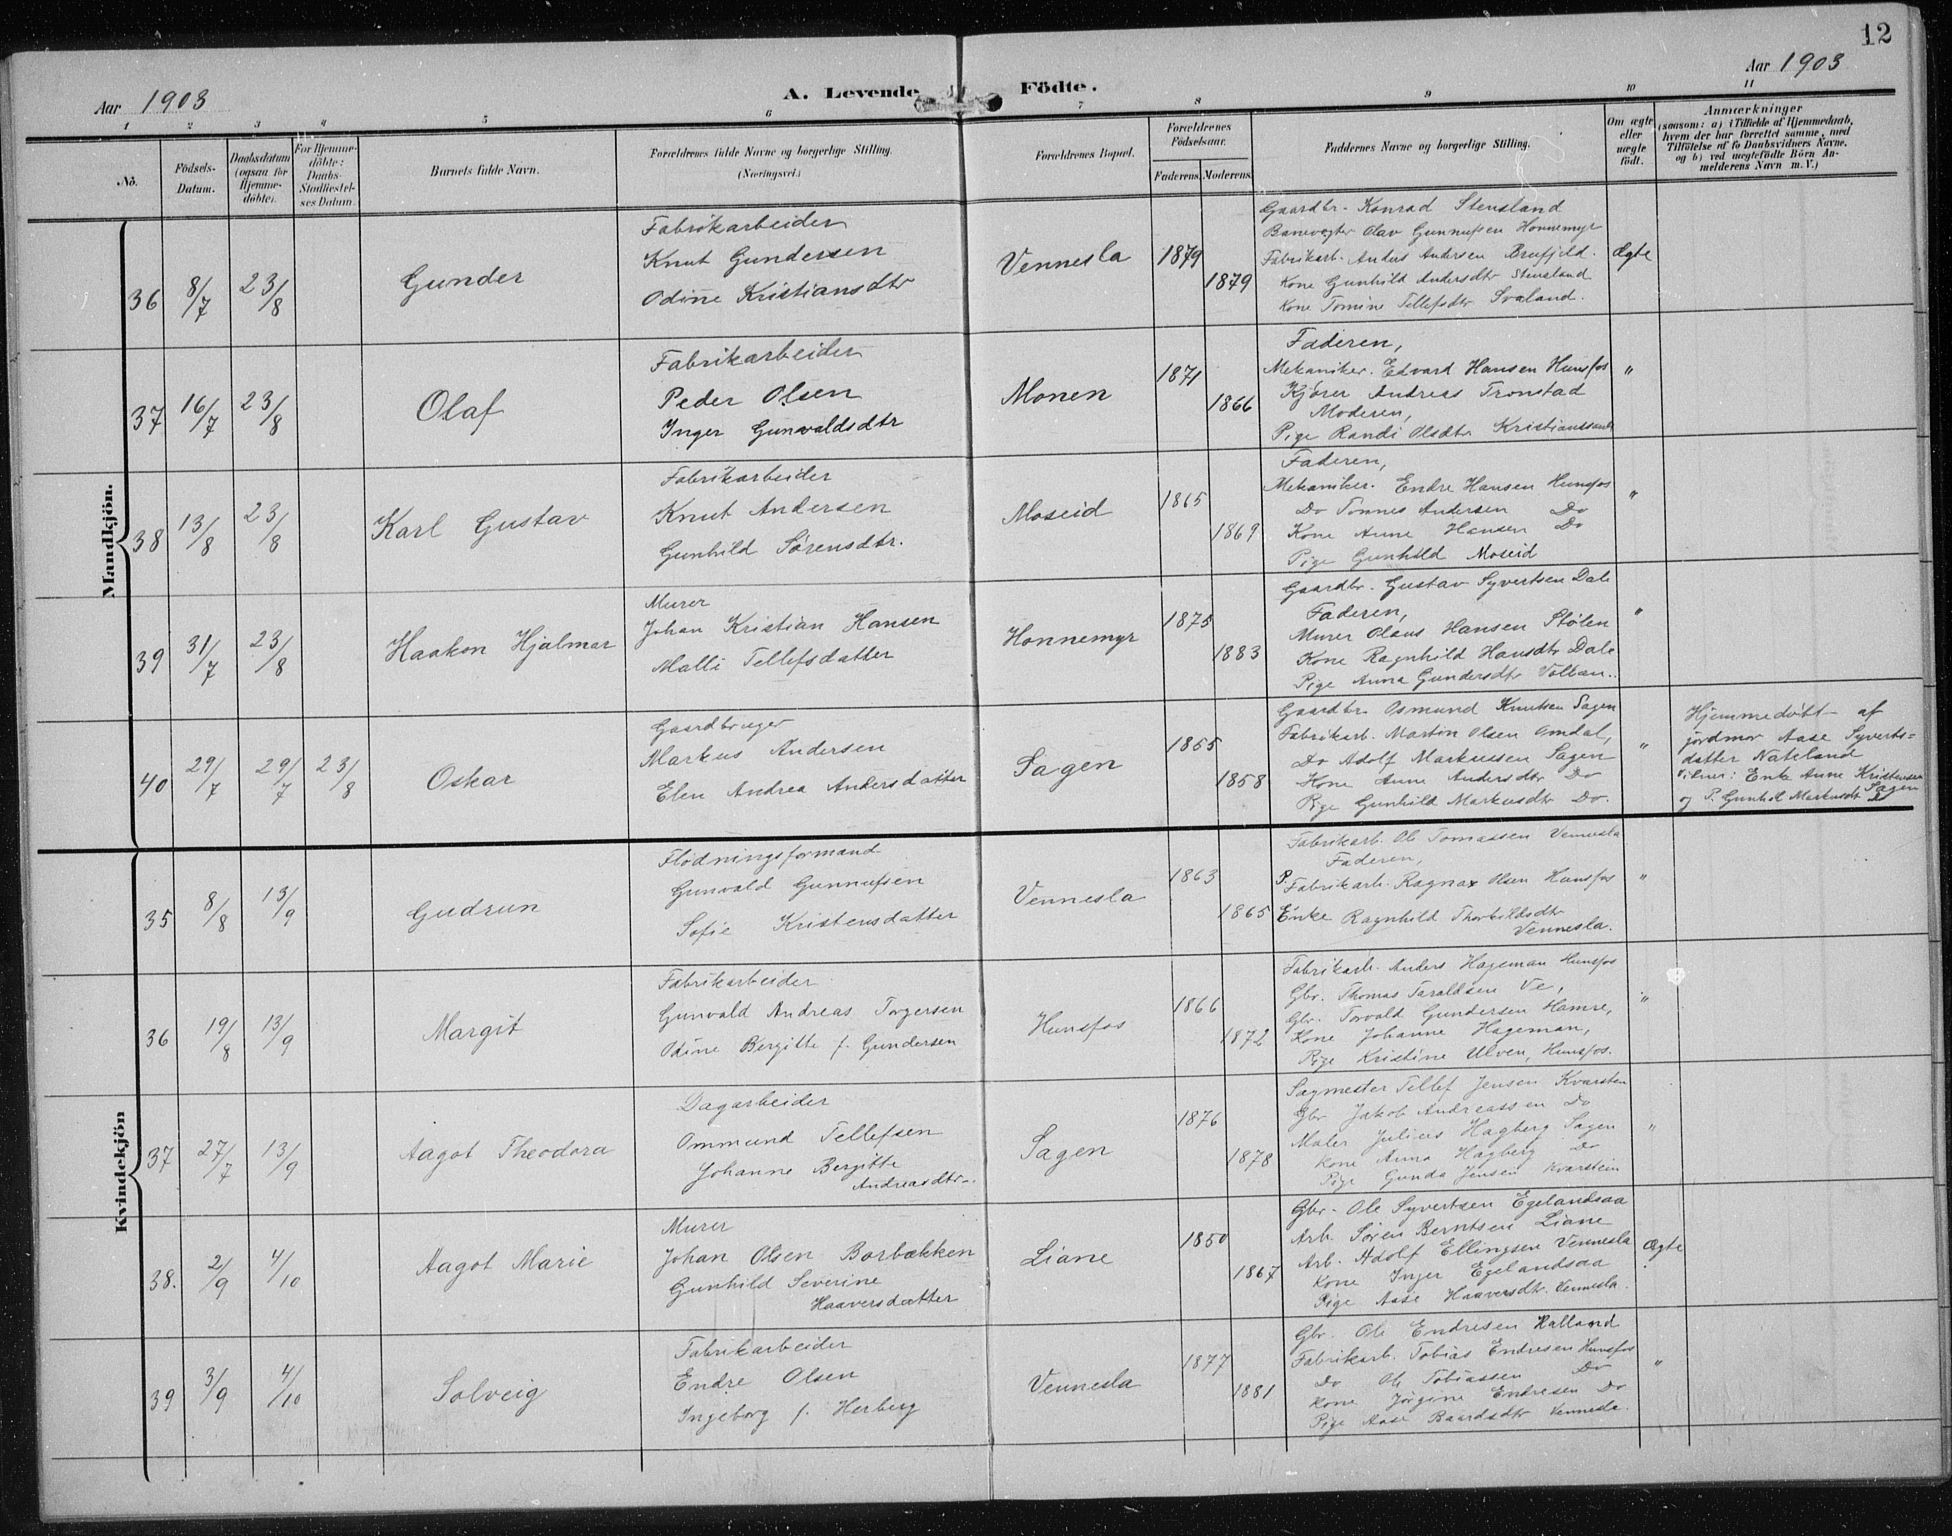 12
Aar 1903
A. Levende Födte.
Aar 1903
1 2 3 4 5 6 7 8 9 10 11
Nö.
Födsels-
Datum.
Daabsdatum
(ogsaa for
Hjemme-
döbte).
For Hjemme-
döbte:
Daabs-
Stadfæstel-
ses Datum.
Barnets fulde Navn.
Forældrenes fulde Navne og borgerlige Stilling.
(Næringsvei.)
Forældrenes Bopæl.
Forældrenes
Födselsaar.
Faderens. Moderens.
Faddernes Navne og borgerlige Stilling.
Om ægte
eller
uægte
födt.
Anmærkninger
(saasom: a) i Tilfælde af Hjemmedaab,
hvem der har forrettet samme, med
Tilföielse af to Daabsvidners Navne.
og b) ved uægtefödte Börn An-
melderens Navn m. V.)
Mandkjön.
36 8/7 23/8
Gunder
Fabrikarbeider
Knut Gundersen
Odine Kristiansdtr
Vennesla
1879
1879
Gaardbr. Konrad Stensland
Banevogter Olav Gunnufsen Honnemyr
Fabrikarb. Anders Andersen
Kone Gunhild Andersdtr Stensland
Kone Tomine Tellefsdtr Svaland.
Ægte
37 16/7 23/8
Olaf
Fabrikarbeider
Peder Olsen
Inger Gunvaldsdtr
Monen
1871
1866
Faderen,
Mekaniker. Edvard Hansen Hunsfos
Kjörer Andreas Tronstad
Moderen,
Pige Randi Olsdtr Kristianssand
"
38 13/8 23/8
Karl Gustav
Fabrikarbeider
Knut Andersen
Gunhild Sörensdtr.
Moseid
1865
1869
Faderen,
Mekaniker. Endre Hansen Hunsfos
Do Tönnes Andersen Do
Kone Anne Hansen Do
Pige Gunhild Moseid
"
39 31/7 23/8
Haakon Hjalmar
Murer
Johan Kristian Hansen
Malli Tellefsdatter
Honnemyr
1875
1883
Gaardbr. Gustav Syvertsen Dale
Faderen,
Murer Olaus Hansen Stölen
Kone Ragnhild Hansdtr Dale
Pige Anna Gundersdtr Volban..
"
40 29/7 29/7 23/8
Oskar
Gaardbruger
Markus Andersen
Elen Andrea Andersdatter
Sagen
1855
1858
Gaardbr. Osmund Knutsen Sagen
Fabrikarb. Martin Olsen Omdal,
Do Adolf Markussen Sagen
Kone Anne Andersdtr Do
Pige Gunhild Markusdtr Do.
"
Hjemmedöbt af
jordmor Aase Syverts=
datter Nateland
Vitner: Enke Anne Kristensen
og P. Gunhil Markusdt Sagen
Kvindekjön
35 8/8 13/9
Gudrun
Flödningsformand
Gunvald Gunnufsen
Sofie Kristensdatter
Vennesla
1863
1865
Fabrikarb. Ole Tomassen Vennesla
Faderen,
P. Fabrikarb. Ragnar Olsen Hunsfos
Enke Ragnhild Thorkildsdtr
Vennesla.
"
36 19/8 13/9
Margit
Fabrikarbeider
Gunvald Andreas Torgersen
Odine Bergitte f. Gundersen
Hunsfos
1866
1872
Fabrikarb. Anders Hageman Hunsfos
Gbr. Thomas Taraldsen Ve,
Gbr. Torvald Gundersen Hamre,
Kone Johanne Hageman,
Pige Kristine Ulven, Hunsfos.
"
37 27/7 13/9
Aagot Theodora
Dagarbeider
Ommund Tellefsen
Johanne Bergitte
Andreasdtr.
Sagen
1876
1878
Sagmester Tellef Jensen Kvarsten
Gbr Jakob Andreassen Do
Maler Julius Hagberg Sagen
Kone Anna Hagberg Do
Pige Gunda Jensen Kvarstein
"
38. 2/9 4/10
Aagot Marie
Murer
Johan Olsen Borbækken
Gunhild Severine
Haaversdatter
Liane
1850
1867
Gbr. Ole Syvertsen Egelandsaa
Arb. Sören Berntsen Liane
Arb. Adolf Ellingsen Vennesla
Kone Inger Egelandsaa
Pige Aase Haaversdtr. Vennesla.
Ægte
39 3/9 4/10
Solveig
Fabrikarbeider
Endre Olsen
Ingeborg f. Herberg
Vennesla
1877
1881
Gbr. Ole Endresen Halland
Fabrikarb. Tobias Endresen Hunsfos
Do Ole Tobiassen Do
Kone Jörgine Endresen Do
Pige Aase Baardsdtr Vennesla.
"